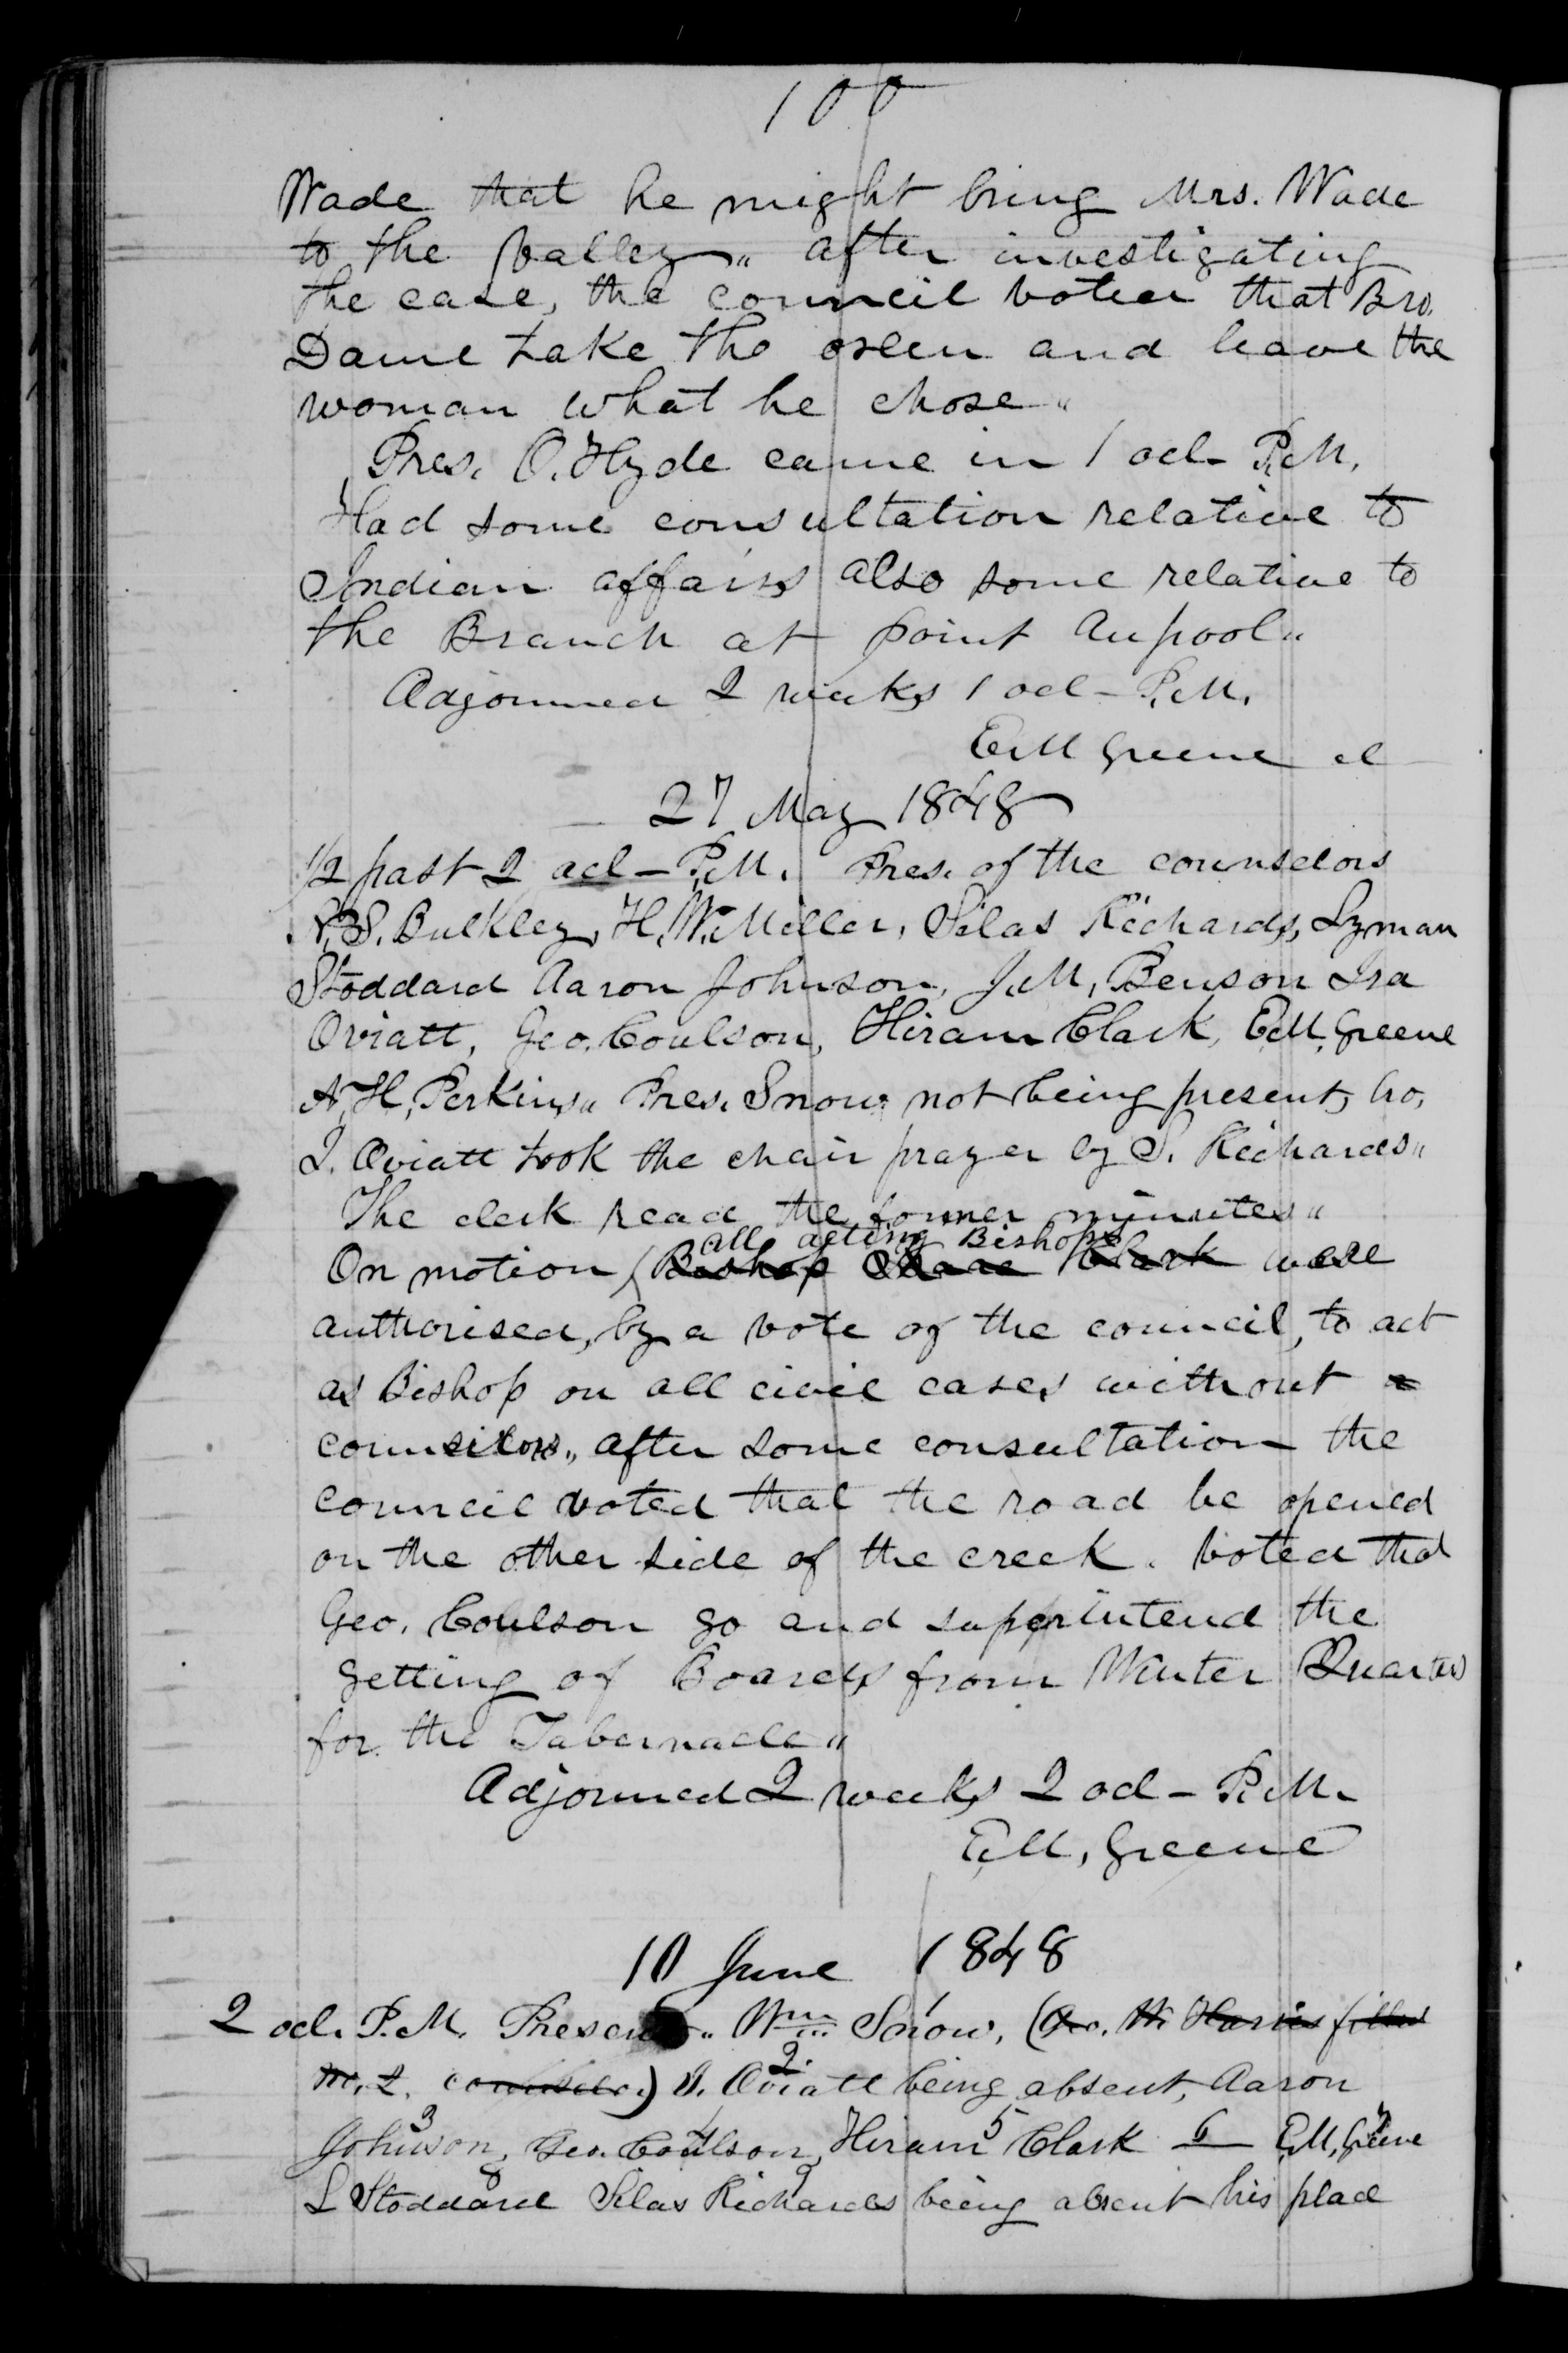 100
Wade that he might bring Mrs. Wade
to the valley„ after investigating
the case, the council voted that Bro.
Dame take the oxen and leave the
woman what he chose„
Pres. O. Hyde came in 1 ocl- P.M.
Had some consultation relative to
Indian affairs also some relative to
the Branch at point Aupool„
Adjourned 2 weeks 1 ocl- P.M.
E.M Greene cl
27 May 1848
1/2 past 2 ocl - P.M. Pres. of the counselors
N.S. Bulkley, H.W. Miller, Silas Richards, Lyman
Stoddard Aaron Johnson, J.M, Benson Ira
Oviatt, Geo. Coulson, Hiram Clark, E.M. Greene
A,H, Perkins„ Pres. Snow not being present, bro,
I. Oviatt took the chair prayer by S. Richards„
The clerk read the former minutes„
all acting Bishops
On motion (Bishop Clark were
authorised, by a vote of the council, to act
as Bishop on all civil cases without a
counsilors„ after some consultation the
council voted that the road be opened
on the other side of the creek. voted that
Geo. Coulson go and superintend the
getting of Boards from Winter Quarters
for the Tabernacle„
Adjourned 2 weeks 2 ocl - P.M.
E.M, Greene
10 June 1848
2 ocl. P.M. Present„ Wm Snow, 1 (Geo. W. Harris filled
no. 2. counselor.) I. Oviatt 2. being absent, Aaron
Johnson, 3 Geo. Coulson, 4 Hiram Clark 5 6 E,M, Greene 7
L Stoddard 8 Silas Richards 9 being absent his place